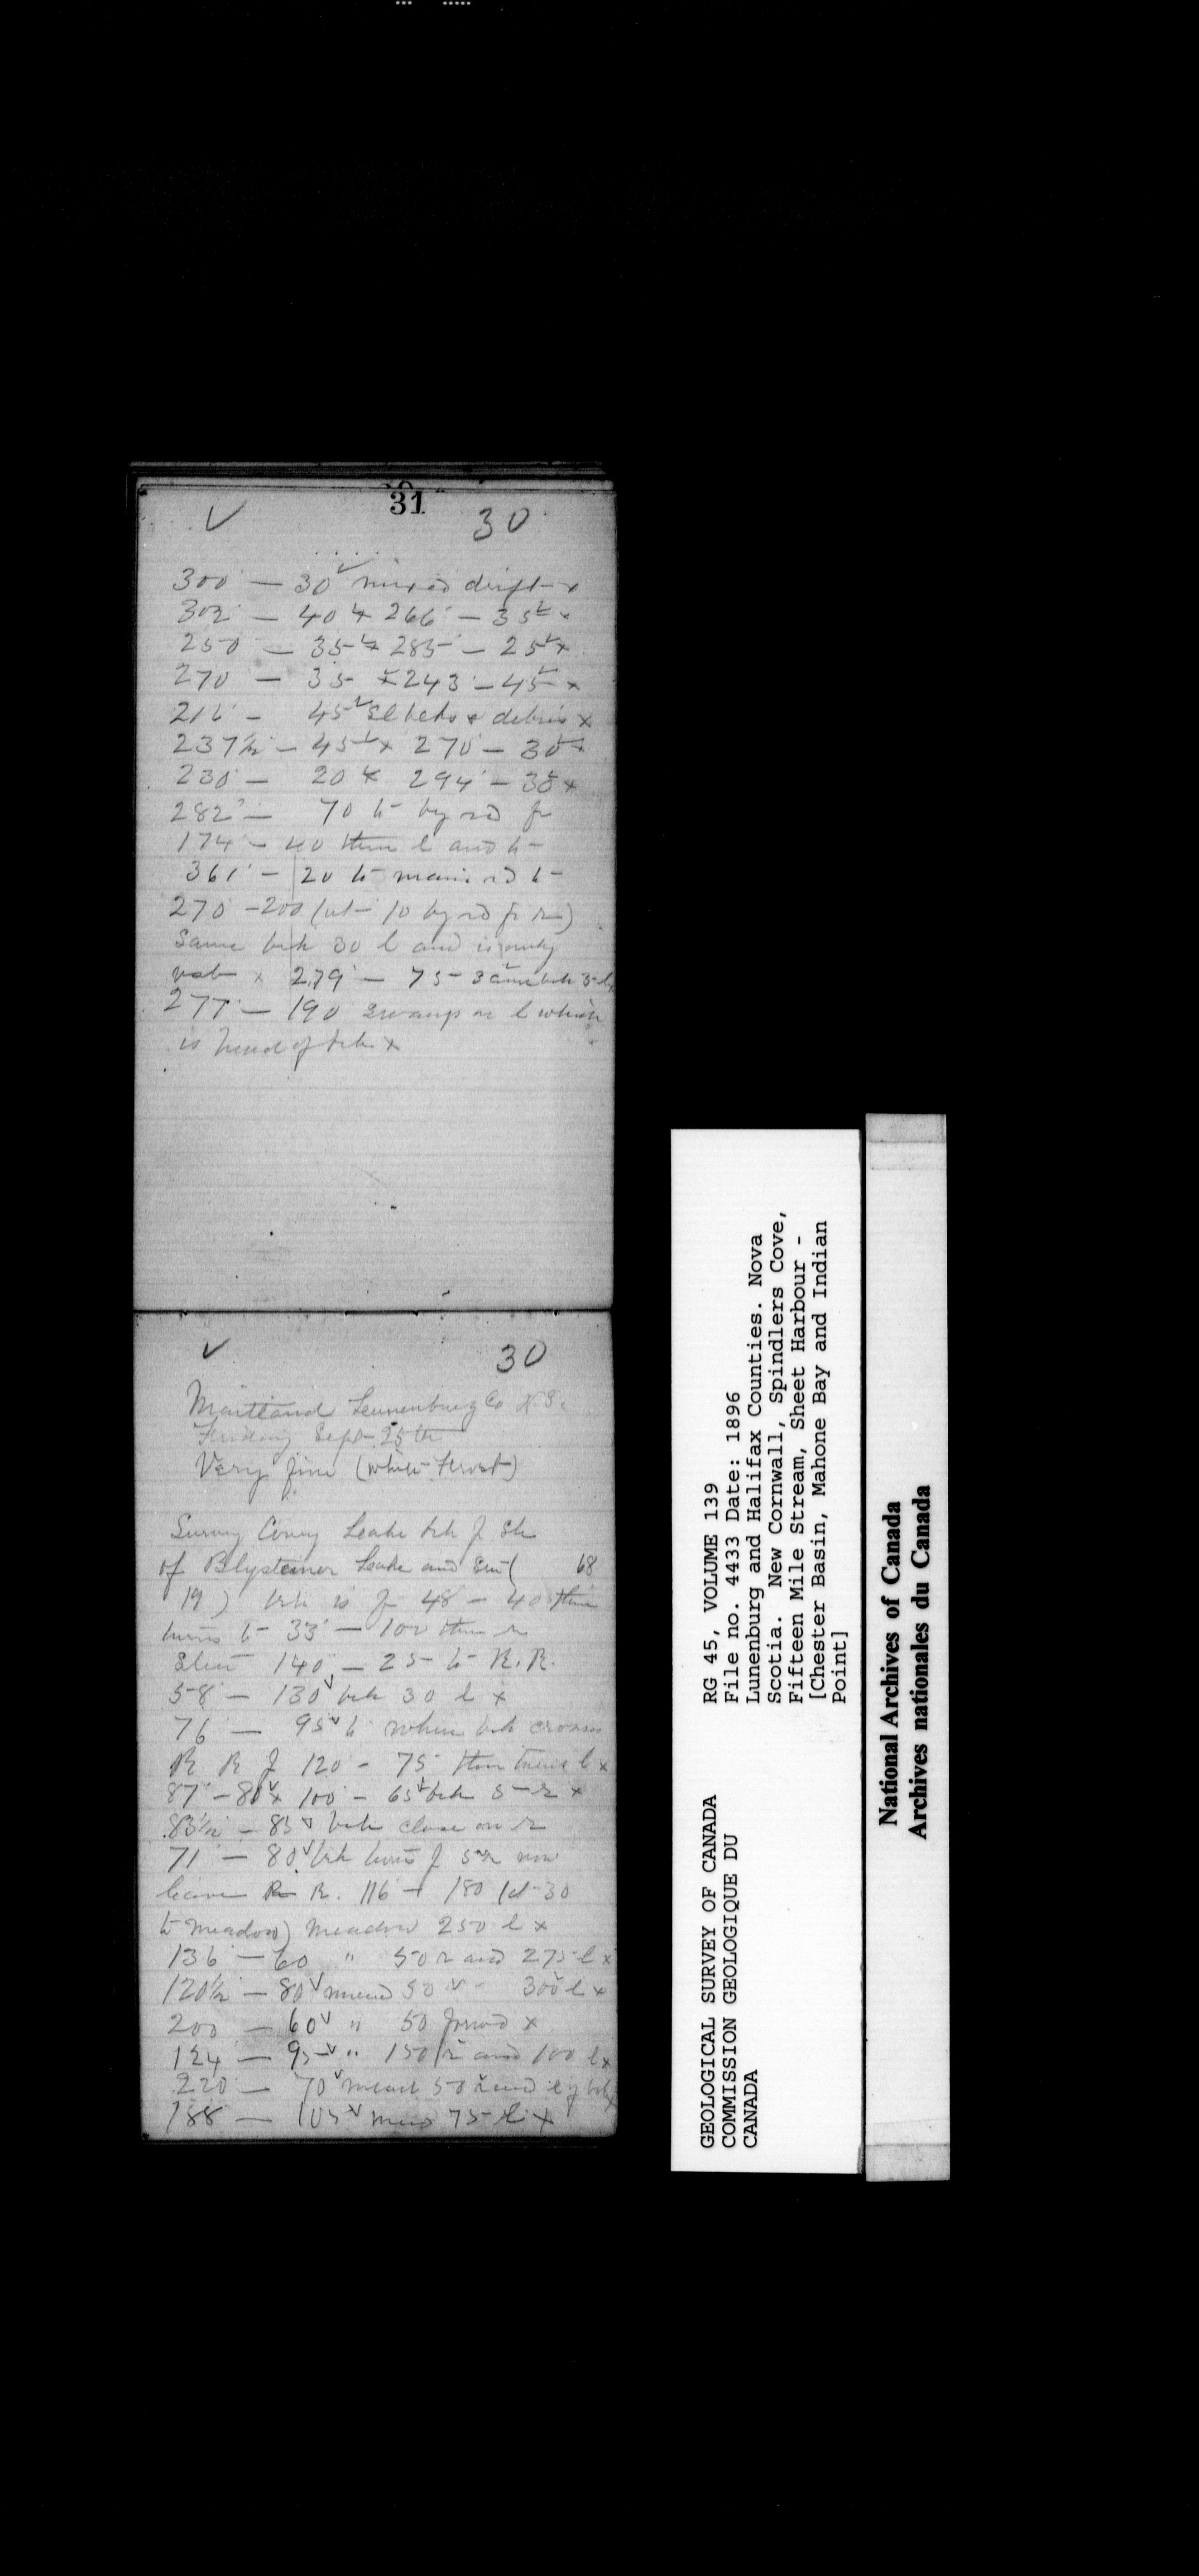 31
30
300 — 30 mixed drift x
302 — 40 x 266 — 35 x
250 — 35 x 285 — 25 x
270 — 35 x 243 — 45 x
216 — 45 debris x
237½ — 45 x 270 — 30 x
230 — 20 x 294 — 38 x
282 — 70 to by rd
174 — 40 then l and to
361 — 20 to main rd to
270 — 200 (at 10 by rd
Same brk 30 l and is only
x 279 — 75 same brk 5 l
277 — 190 swamp on l which
is head of brk x
30
Maitland Lunenburg Co N.S.
Friday Sept 25th
Very fine (white frost)
Survey Covey Leake brk
of Blysteiner Leake and 68
19) brk is 48 — 40 then
turns to 33 — 100 then
140 — 25 to R.R.
58 — 130 brk 30 l x
76 — 95 to where brk crosses
R R 120 — 75 then turns l x
87 — 80 x 100 — 65 brk 5 r x
83½ — 85 brk close on r
71 — 80 brk turns 5 r now
leave R. 116 — 180 (at 30
to meadow) meadow 250 l x
136 — 60 " 50 r and 275 l x
120½ — 80 mead 50 300 l x
200 — 60 " 50 x
124 — 95 " 150 r and 100 l x
220 — 70 mead 50 and
188 — 105 mead 75 x
GEOLOGICAL SURVEY OF CANADA
COMMISSION GEOLOGIQUE DU
CANADA
RG 45, VOLUME 139
File no. 4433 Date: 1896
Lunenburg and Halifax Counties. Nova
Scotia. New Cornwall, Spindlers Cove,
Fifteen Mile Stream, Sheet Harbour -
[Chester Basin, Mahone Bay and Indian
Point]
National Archives of Canada
Archives nationales du Canada